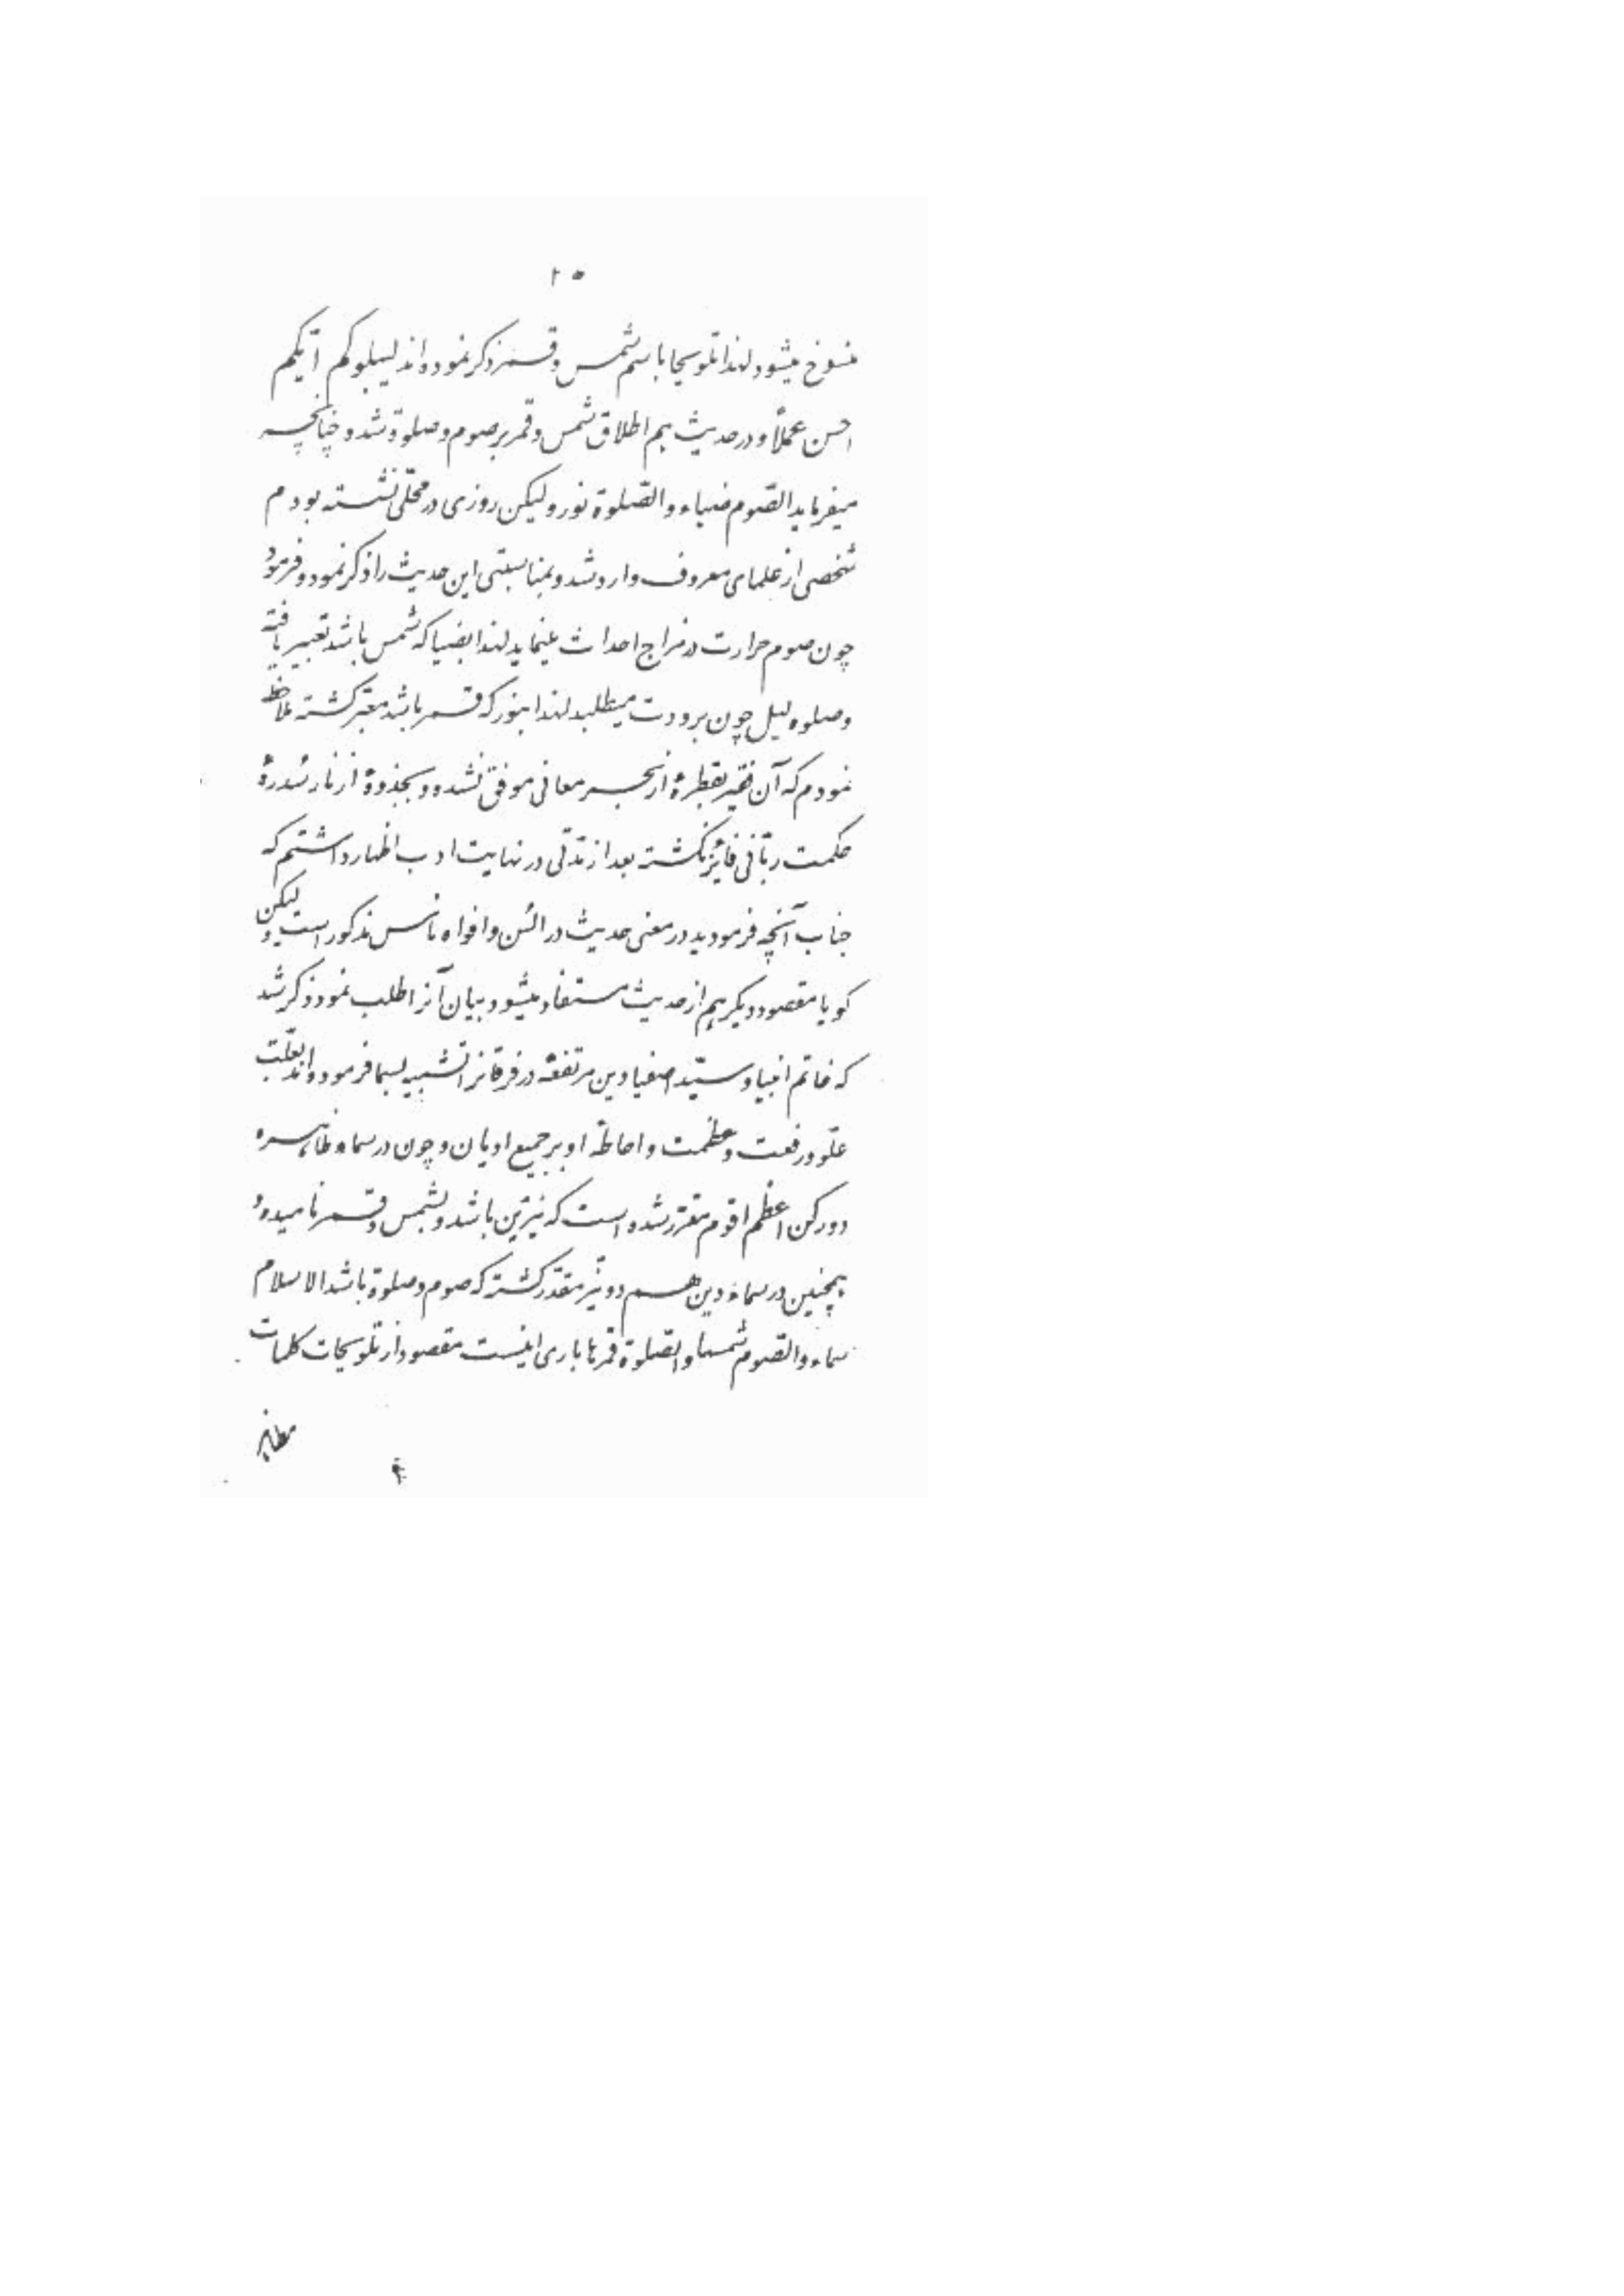 ۲۵
منسوخ میشود لهذا تلویحا باسم شمس و قمر ذکر نموده‌اند لیبلوکم ایّکم
احسن عملاً و در حدیث هم اطلاق شمس و قمر بر صوم و صلوة شده چنانچه
میفرماید الصّوم ضیاء و الصّلوة نور ولیکن روزی در محلّی نشسته بودم
شخصی از علمای معروف وارد شد و بمناسبتی این حدیث را ذکر نمود و فرمود
چون صوم حرارت در مزاج احداث مینماید لهذا بضیا که شمس باشد تعبیر یافته
و صلوه لیل چون برودت میطلبد لهذا بنور که قمر باشد معبّر گشته ملاحظه
نمودم که آن فقیر بقطرهٔ از بحر معانی موفق نشده و بجذوهٔ از نار سدرهٔ
حکمت ربّانی فائز نگشته بعد از مدّتی در نهایت ادب اظهار داشتم که
جناب آنچه فرمودید در معنی حدیث در السن و افواه ناس مذکور است ولیکن
گویا مقصود دیگر هم از حدیث مستفاد میشود بیان آنرا طلب نمود ذکر شد
که خاتم انبیا و سیّد اصفیا دین مرتفعه در فرقانرا تشبیه بسما فرموده‌اند بعلّت
علوّ و رفعت و عظمت و احاطهٔ او بر جمیع ادیان و چون در سماء ظاهره
دو رکن اعظم اقوم مقرّر شده است که نیّرین باشد و بشمس و قمر نامیده‌اند
همچنین در سماء دین هم دو نیّر مقدّر گشته که صوم و صلوة باشد الاسلام
سماء و الصوم شمسها و الصّلوة قمرها باری اینست مقصود از تلویحات کلمات
مظاهر